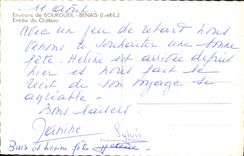 11 août
Environs de BOURGUEIL - BENAIS (I.-et-L.)
Entrée du Château
Avec un peu de retard nous
venons te souhaiter une bonne
fête. Hélène est arrivée depuis
hier et nous fait le
récit de son voyage si
agréable.
Bons baisers
Janine Sylvie
Bises et bonne fête Hélène